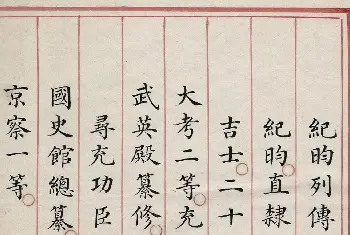 紀昀列傳
紀昀直隸
吉士二十
大考二等充
武英殿纂修
尋充功臣
國史館總纂
京察一等